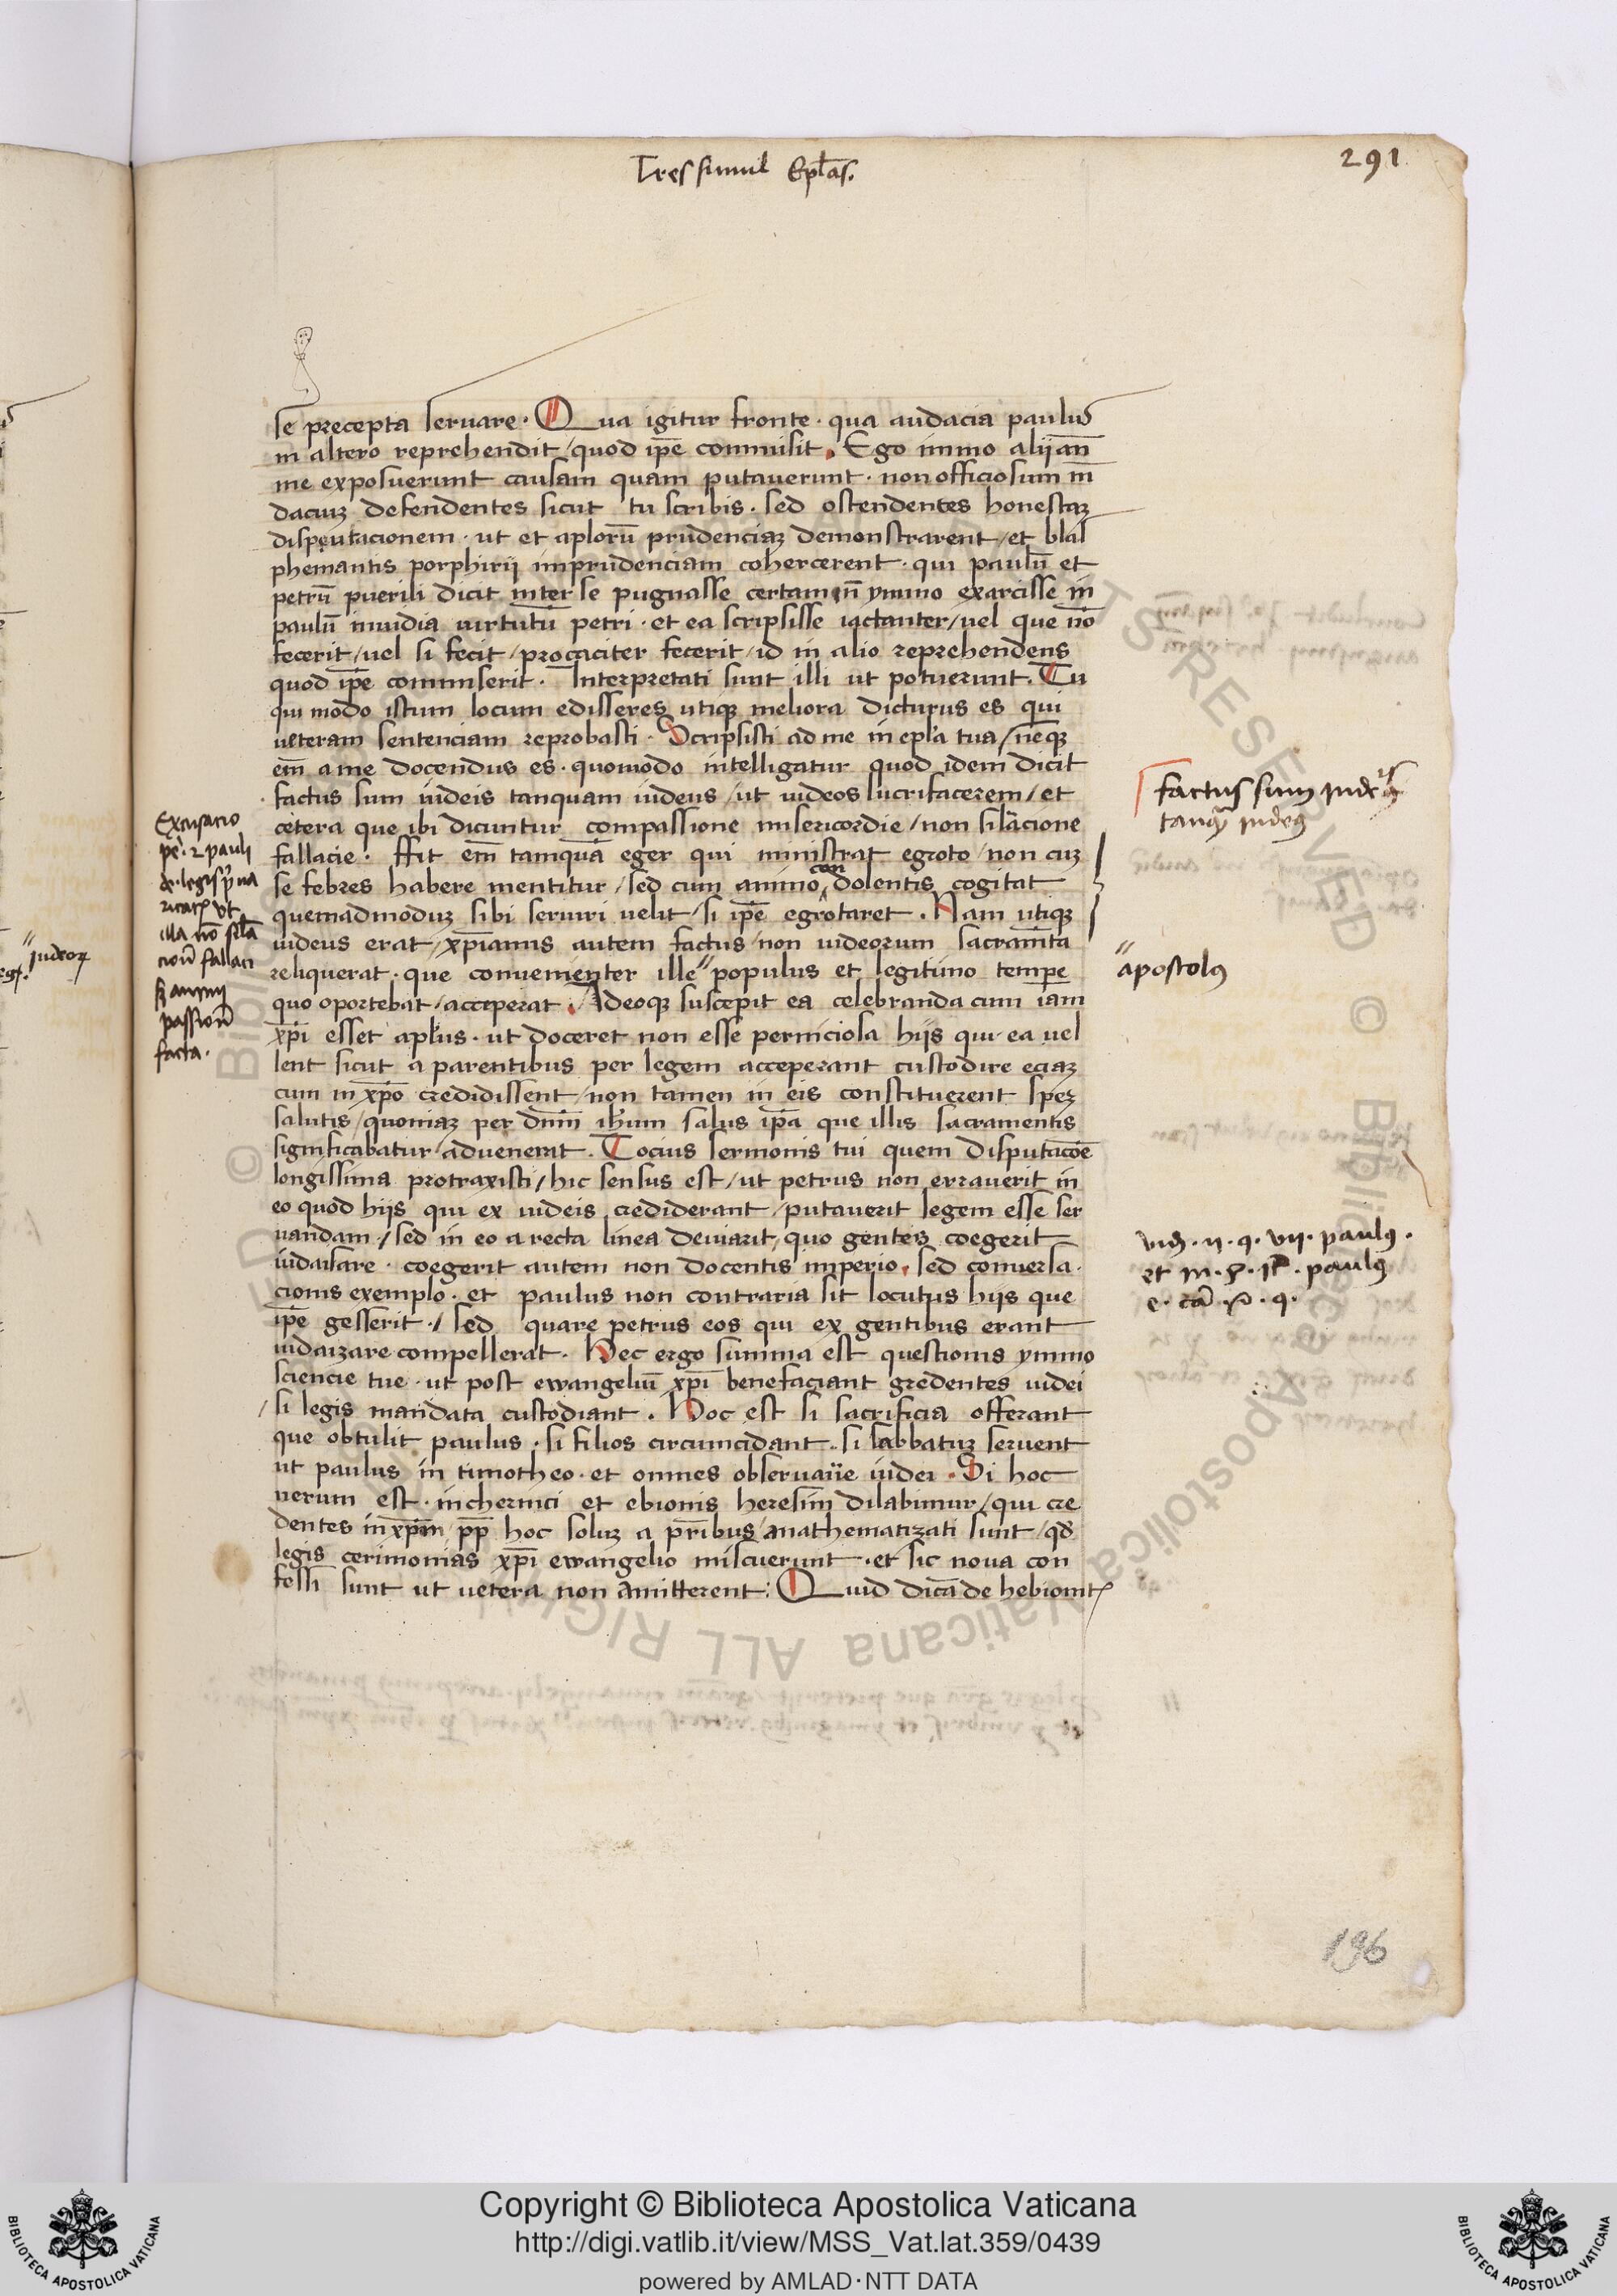 Tres simul Ep̄las.
291
se precepta servare. Qua igitur fronte. qua audacia paulus
in altero reprehendit / quod ip̄e commisit. Ego immo alij an̄
me exposuerunt causam quam putaverunt. non officiosum m̄
daciuz defendentes sicut tu scribis. sed ostendentes honestaz
dispeutacionem. ut et aplorū prudenciaz demonstrarent / et blas
phemantis porphirij imprudenciam cohercerent. qui paulū et
petrū puerili dicit inter se pugnasse certamīn ymmo exarcisse in
paulū invidia virtutū petri. et ea scripsisse iactanter / vel que nō
fecerit / vel si fecit / procaciter fecerit / id in alio reprehendens
quod ip̄e commiserit. Interpretati sunt illi ut potuerunt. Tu
qui modo istum locum edisseres utiqz meliora dicturus es qui
veteram sentenciam reprobasti. Scripsisti ad me in epl̄a tua / neqz
em̄ a me docendus es. quomodo intelligatur quod idem dicit
factus sum iudeis tanquam iudeus / ut iudeos lucrifacerem / et
cetera que ibi dicuntur compassione misericordie / non sil̄acione
fallacie. ffit em̄ tamquā eger qui ministrat egroto / non cuz
se febres habere mentitur / sed cum animo condolentis cogitat
quemadmoduz sibi serviri velit / si ip̄e egrotaret. Nam utiqz
iudeus erat / xp̄ianus autem factus / non iudeorum sacram̄ta
reliquerat. que convenienter ille" populus et legitimo temp̄e
quo oportebat / acceperat. Adeoqz suscepit ea celebranda cum iam
xp̄i esset apl̄us. ut doceret non esse perniciosa hijs qui ea vel
lent sicut a parentibus per legem acceperant custodire eciaz
cum in xp̄o credidissent / non tamen in eis constituerent spez
salutis / quoniaz per dn̄m ih̄um salus ip̄a que illis sacramentis
significabatur / advenerat. Tocius sermonis tui quem disputacōe
longissima protraxisti / hic sensus est / ut petrus non erraverit in
eo quod hijs qui ex iudeis crediderant / putaverit legem esse ser
vandam / sed in eo a recta linea deviarit / quo gentes coegerit
iudaisare. coegerit autem non docentis imperio. sed conversa.
cionis exemplo. et paulus non contraria sit locutus hijs que
ip̄e gesserit. / sed quare petrus eos qui ex gentibus erant
iudaizare compellerat. Hec ergo summa est questionis ymmo
sciencie tue. ut post ewangeliū xp̄i benefaciant gredentes iudei
/ si legis mandata custodiant. Hoc est si sacrificia offerant
que obtulit paulus. si filios circumcidant. si sabbatuz servent
ut paulus in timotheo. et omnes observaũe iudei. Si hoc
verum est. in cherinci et ebionis heresim dilabimur / qui cre
dentes in xp̄m / pp̄ hoc soluz a pr̄ibus anathematizati sunt / qd̄
legis cerimonias xp̄i ewangelio miscuerunt. et sic nova con
fessi sunt ut vetera non amitterent: Quid dicā de hebionit
Excusacio
pe. 2 pauli
illa nō sil̄a
cionē fallaci
passionē
facta.
iudeorz
factus sum iudeis
tanqz iudeus
"apostolus
vid. ii. q. vii. paulus.
paulus
196
Copyright © Biblioteca Apostolica Vaticana
http://digi.vatlib.it/view/MSS_Vat.lat.359/0439
powered by AMLAD·NTT DATA
BIBLIOTECA APOSTOLICA VATICANA
BIBLIOTECA APOSTOLICA VATICANA